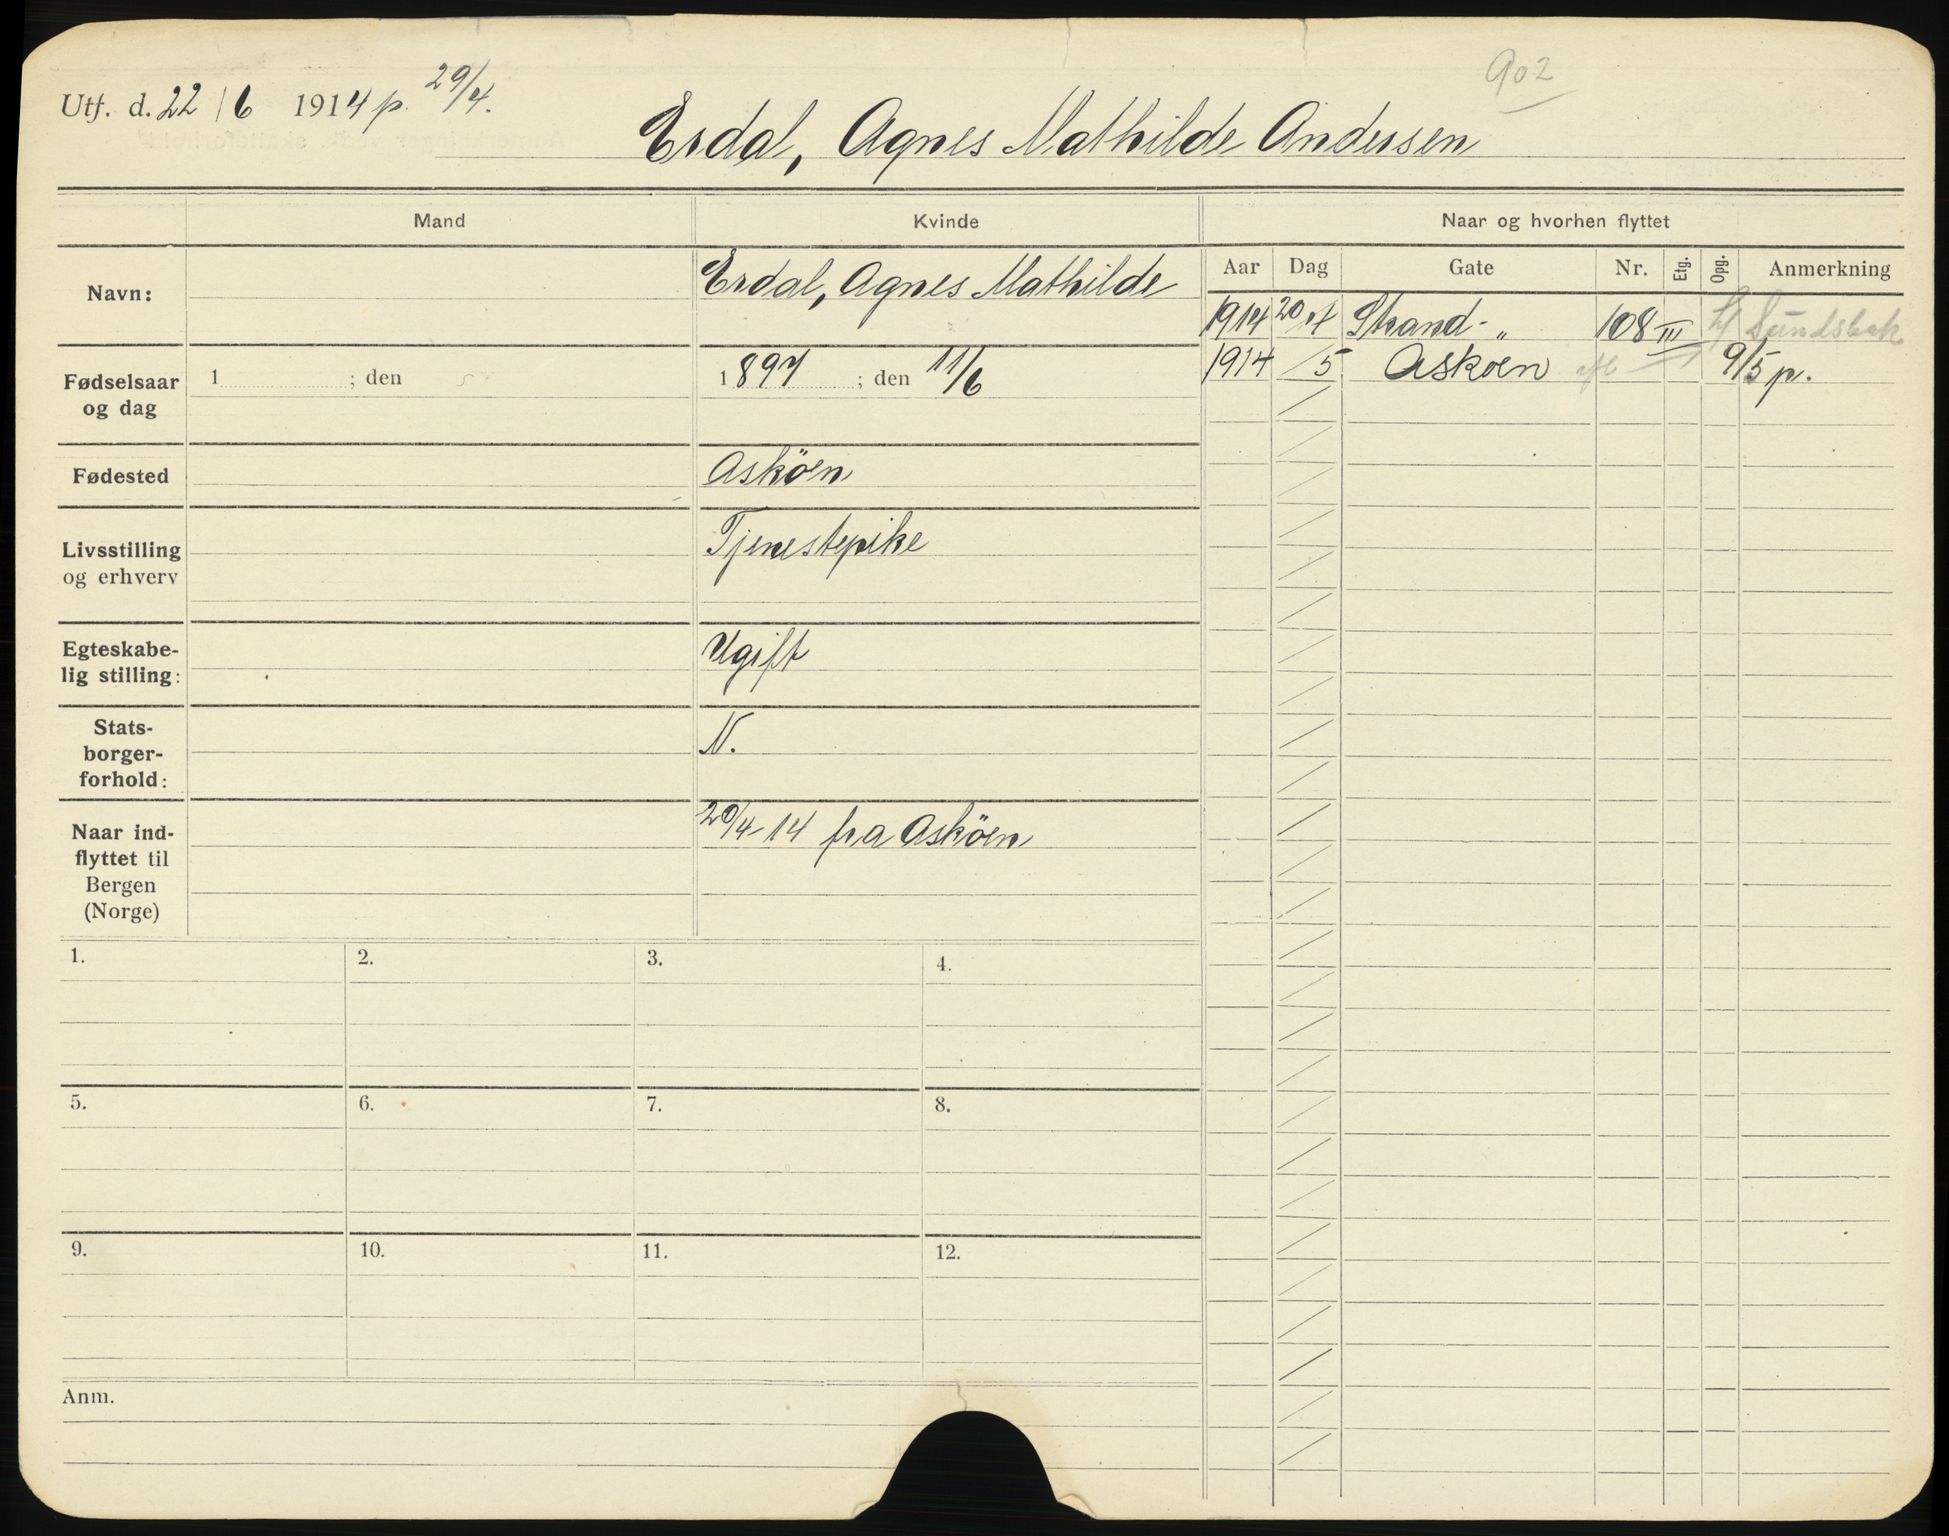 902
Utf. d. 22/6 1914 p. 29/4.
Erdal, Agnes Mathilde Andersen
Mand
Kvinde
Naar og hvorhen flyttet
Aar Dag Gate Nr. Etg. Opg. Anmerkning
Navn:
Erdal, Agnes Mathilde
1914 20/4 Strand- „ 108 III Sundsbak
1914 /5 Askøen 9/5 p.
Fødselsaar
og dag
1 ; den
1897 ; den 11/6
Fødested
Asköen
Livsstilling
og erhverv
Tjenestepike
Egteskabe-
lig stilling:
Ugift
Stats-
borger-
forhold:
N.
Naar ind-
flyttet til
Bergen
(Norge)
20/4-14 fra Asköen
1. 2. 3. 4.
5. 6. 7. 8.
9. 10. 11. 12.
Anm.